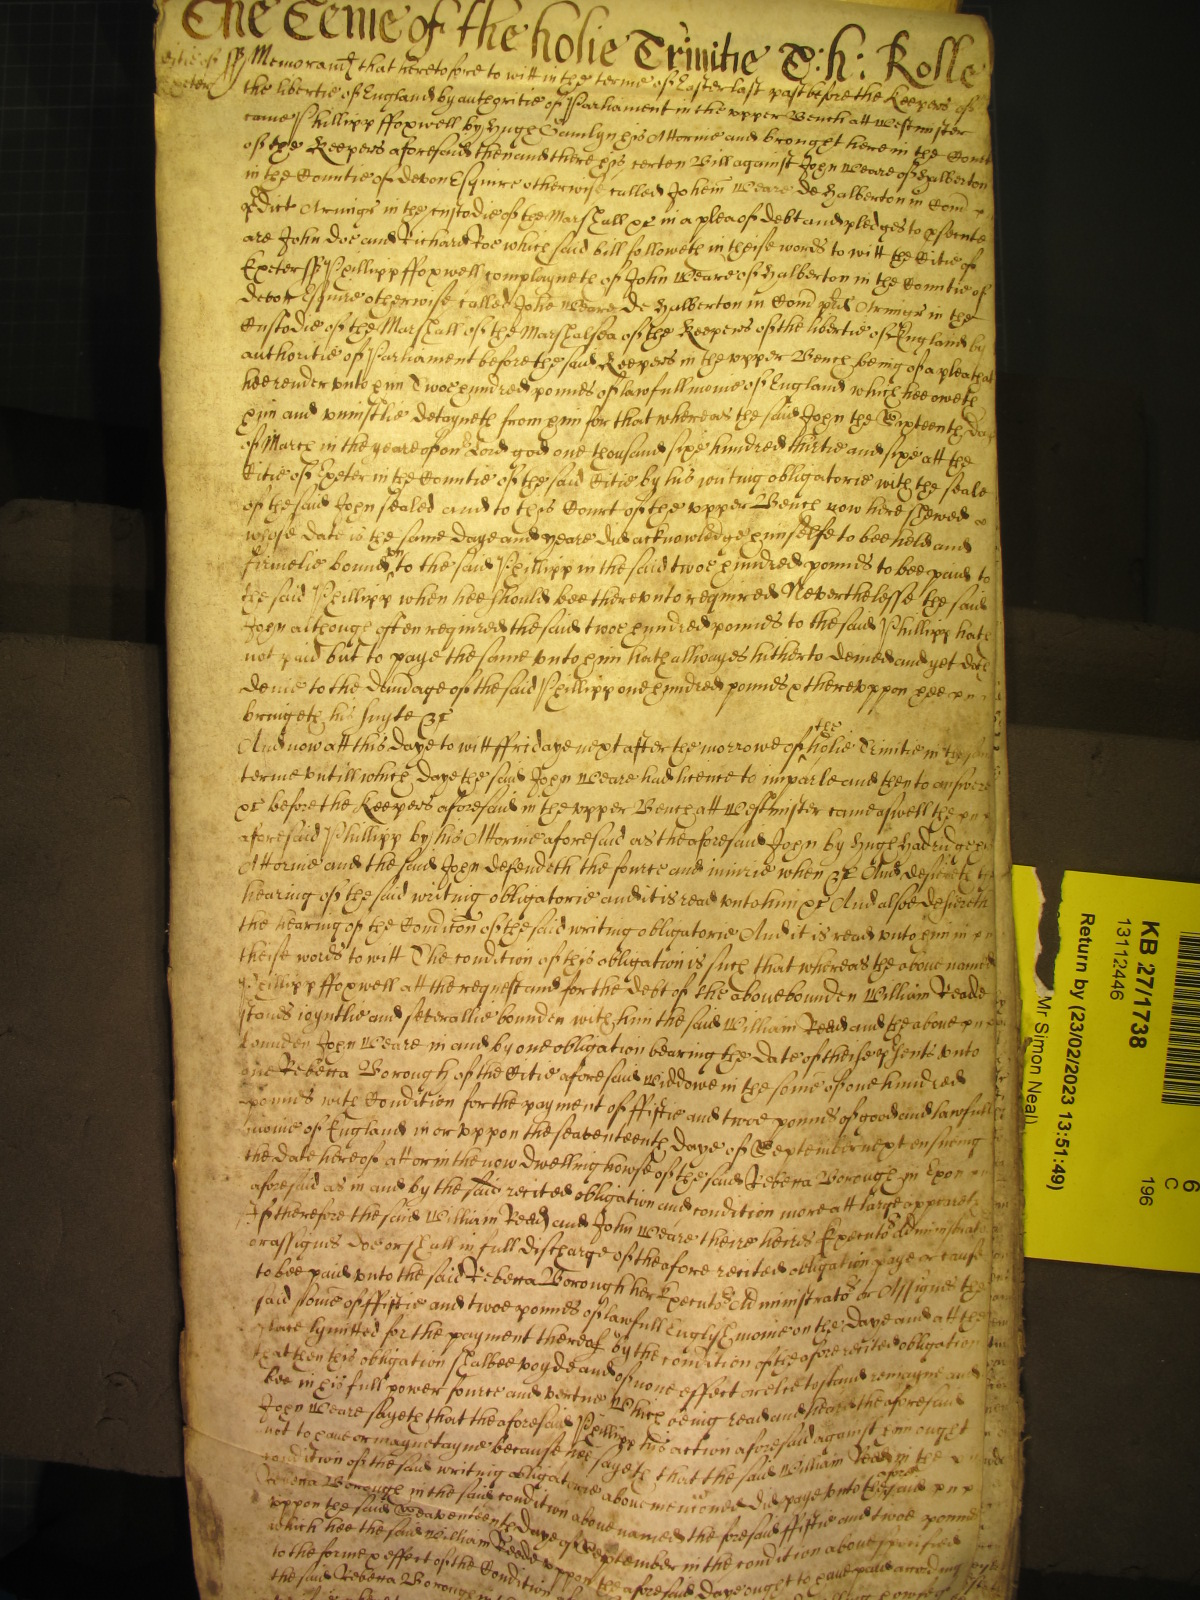 The Terme of the holie Trinitie T: h: Rolle
Citie of Exeter ss Memorand that heretofore to witt in the terme of Easter last past before the Keepers of
the libertie of England by authoritie of Parliament in the vpper Bench att Westminster
came Phillipp ffoxwell by Hugh Gamlyn his Attornie and brought here in the Court
of the Keepers aforesaid then and there his certen Bill against John Weare of Halberton
in the Countie of Devon Esquire otherwise called Johem Weare de Halberton in Com
pdict Armigr in the custodie of the Marshall &c in a plea of debt and pledges to psecute
are John Doe and Richard Roe which said bill followeth in theise words to witt the Citie of
Exeter ss Phillipp ffoxwell complayneth of John Weare of Halberton in the Countie of
Devon Esquire otherwise called John Weare de Halberton in Com pred Armigr in the
Custodie of the Marshall of the Marshalsea of the Keepers of the libertie of England by
authoritie of Parliament before the said Keepers in the vpper Bench being of a plea that
hee render vnto him Twoe hundred pounds of lawfull monie of England which hee oweth
him and vniustlie detayneth from him for that whereas the said John the Sixteenth day
of March in the yeare of our Lord god one thousand sixe hundred thirtie and sixe att the
Citie of Exeter in the Countie of the said Citie by his writing obligatorie with the seale
of the said John sealed and to this Court of the vpper Bench now here shewed
whose date is the same daye and yeare did acknowledge himselfe to bee held and
firmelie bound vnto the said Phillipp in the said twoe hundred pounds to bee paid to
the said Phillipp when hee should bee therevnto required Neverthelesse the said
John although often required the said twoe hundred pounds to the said Phillipp hath
not paid but to paye the same vnto him hath allwayes hitherto denied and yet doth
denie to the damage of the said Phillipp one hundred pounds & therevppon hee
bringeth his suyte &c
And now att this daye to witt ffridaye next after the morrowe of the holie Trinitie in
terme vntill which daye the said John Weare had licence to imparle and then to answere
&c before the Keepers aforesaid in the vpper Bench att Westminster came aswell the
aforesaid Phillipp by his Attornie aforesaid as the aforesaid John by Hugh
Attornie and the said John defendeth the fource and iniurie when &c And desireth the
hearing of the said writing obligatorie and it is read vnto him &c And alsoe desireth
the hearing of the Condicon of the said writing obligatorie And it is read vnto him in
theise words to witt The condition of this obligation is such that whereas the above named
Phillipp ffoxwell att the request and for the debt of the abovebounden William Reade
stands ioyntlie and severallie bounden with him the said William Read and the above
bounden John Weare in and by one obligation bearing the date of theise psents vnto
one Rebecca Borough of the Citie aforesaid Widdowe in the some of one hundred
pounds with Condition for the payment of ffiftie and twoe pounds of good and lawfull
monie of England in or vppon the seaventeenth daye of September next ensuing
the date hereof att or in the now dwelling howse of the said Rebecca Borough in Exon
aforesaid as in and by the said recited obligation and condition more att large appeareth
If therefore the said William Read and John Weare theire heires Executors Administrators
or assignes doe or shall in full discharge of the afore recited obligation paye or cause
to bee paid vnto the said Rebecca Borough her Executors Administrators or Assignes the
said some of ffiftie and twoe pounds of lawfull English monie on the daye and att the
place lymitted for the payment thereof by the condition of the afore recited obligation
that then this obligation shalbee voyde and of none effect or else to stand remayne and
bee in his full power fource and vertue Which being read and heard the aforesaid
John Weare sayeth that the aforesaid Phillipp his action aforesaid against him ought
not to have or mayntayne because hee sayeth that the said William Read in the
condition of the said writing obligatorie above mentioned did paye vnto the foresaid
Rebecca Borough in the said condition above named the foresaid ffiftie and twoe pounds
vppon the said Seaventeenth daye of September in the condition above specified
which hee the said William Reade vppon the aforesaid daye ought to have paid according
to the forme & effect of the Condition
the said Rebecca Borough
KB 27/1738
13112446
Return by (23/02/2023 13:51:49)
Mr Simon Neal)
6
C
196